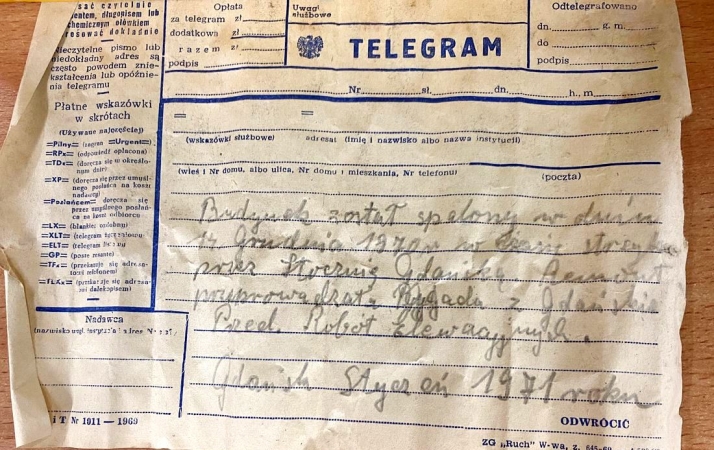 sać czytelnie
mentem, długopisem lub
chemicznym ołówkiem
resować dokładnie
Nieczytelne pismo lub
niedokładny adres są
często powodem znie-
kształcenia lub opóźnie-
nia telegramu
Płatne wskazówki
w skrótach
(Używane najczęściej)
=Pilny= (zagran =Urgent=)
=RPx= (odpowiedź opłacona)
=TDx= (doręcza się w określo-
nym dniu)
=XP= (doręcza się przez umyśl-
nego posłańca na koszt
nadawcy)
=Posłańcem= doręcza się
przez umyślnego posłań-
ca na koszt odbiorcy
=LX= (blankiet ozdobny)
=XLT=
=ELT= (telegram
=GP= (poste restante)
=TFx= (przekazuje się adresa-
towi telefonem)
=TLXx= (przekazuje się adresa-
dalekopisem)
Nadawca
iT Nr 1911 — 1969
Opłata
za telegram zł
dodatkowa zł
razem zł
podpis
Uwagi
służbowe
TELEGRAM
Odtelegrafowano
dn. g. m.
do
podpis
Nr sł. dn. h., m.
= =
(wskazówki służbowe) adresat (imię i nazwisko albo nazwa instytucji)
(wieś i Nr domu, albo ulica, Nr domu i mieszkania, Nr telefonu) (poczta)
Budynek został spalony w dniu
14 Grudnia 1970r w czasie strejku
przez Stocznię Gdańską. Remont
pryprowadzała Brygada z Gdańskie
Przed. Robot Elewacyjnych.
Gdańsk Styczeń 1971 roku
ODWRÓCIĆ
ZG „Ruch" W-wa, z.